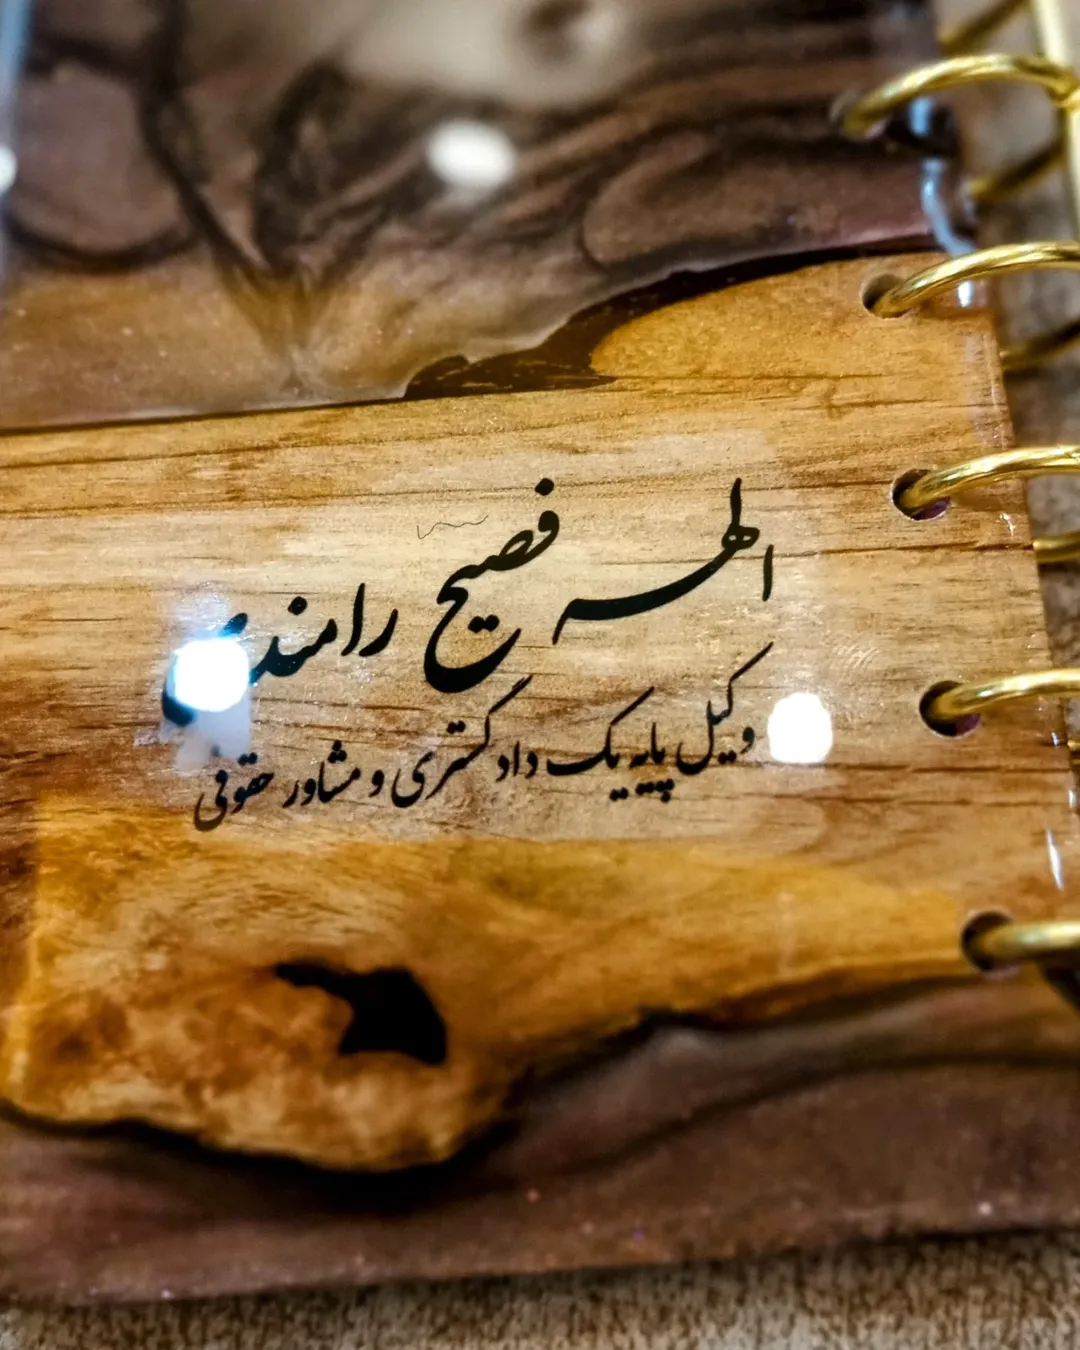 الهه فصیح رامندی
وکیل پایه یک دادگستری و مشاور حقوقی